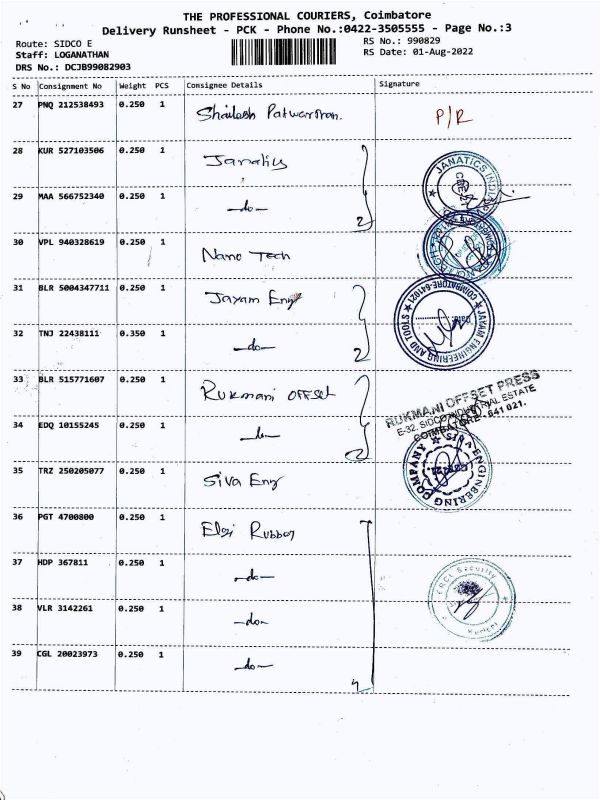 THE PROFESSIONAL COURIERS, Coimbatore
Delivery Runsheet - PCK - Phone No.:0422-3505555 - Page No.:3
Route: SIDCO E
RS No.: 990829
Staff: LOGANATHAN
RS Date: 01-Aug-2022
DRS No.: DCJB99082903
S No Consignment No Weight PCS Consignee Details Signature
27 PNQ 212538493 0.250 1 Shailesh Patwardhan. P/R
28 KUR 527103506 0.250 1 Janatics
JANATICS INDIA
29 MAA 566752340 0.250 1 -do- 2
30 VPL 940328619 0.250 1 Nano Tech
31 BLR 5004347711 0.250 1 Jayam Eng
JAYAM ENGINEERING AND TOOLS COIMBATORE-641021
32 TNJ 22438111 0.350 1 -do- 2
33 BLR 515771607 0.250 1 Rukmani OFFSet
RUKMANI OFFSET PRESS
E-32, SIDCO INDUSTRIAL ESTATE
COIMBATORE - 641 021.
34 EDQ 10155245 0.250 1 -do- 2
SIVA ENGINEERING COMPANY
35 TRZ 250205077 0.250 1 Siva Eng
36 PGT 4700800 0.250 1 Elgi Rubber
37 HDP 367811 0.250 1 -do-
ERCL Security
Kurichi
38 VLR 3142261 0.250 1 -do-
39 CGL 20023973 0.250 1 -do- 4